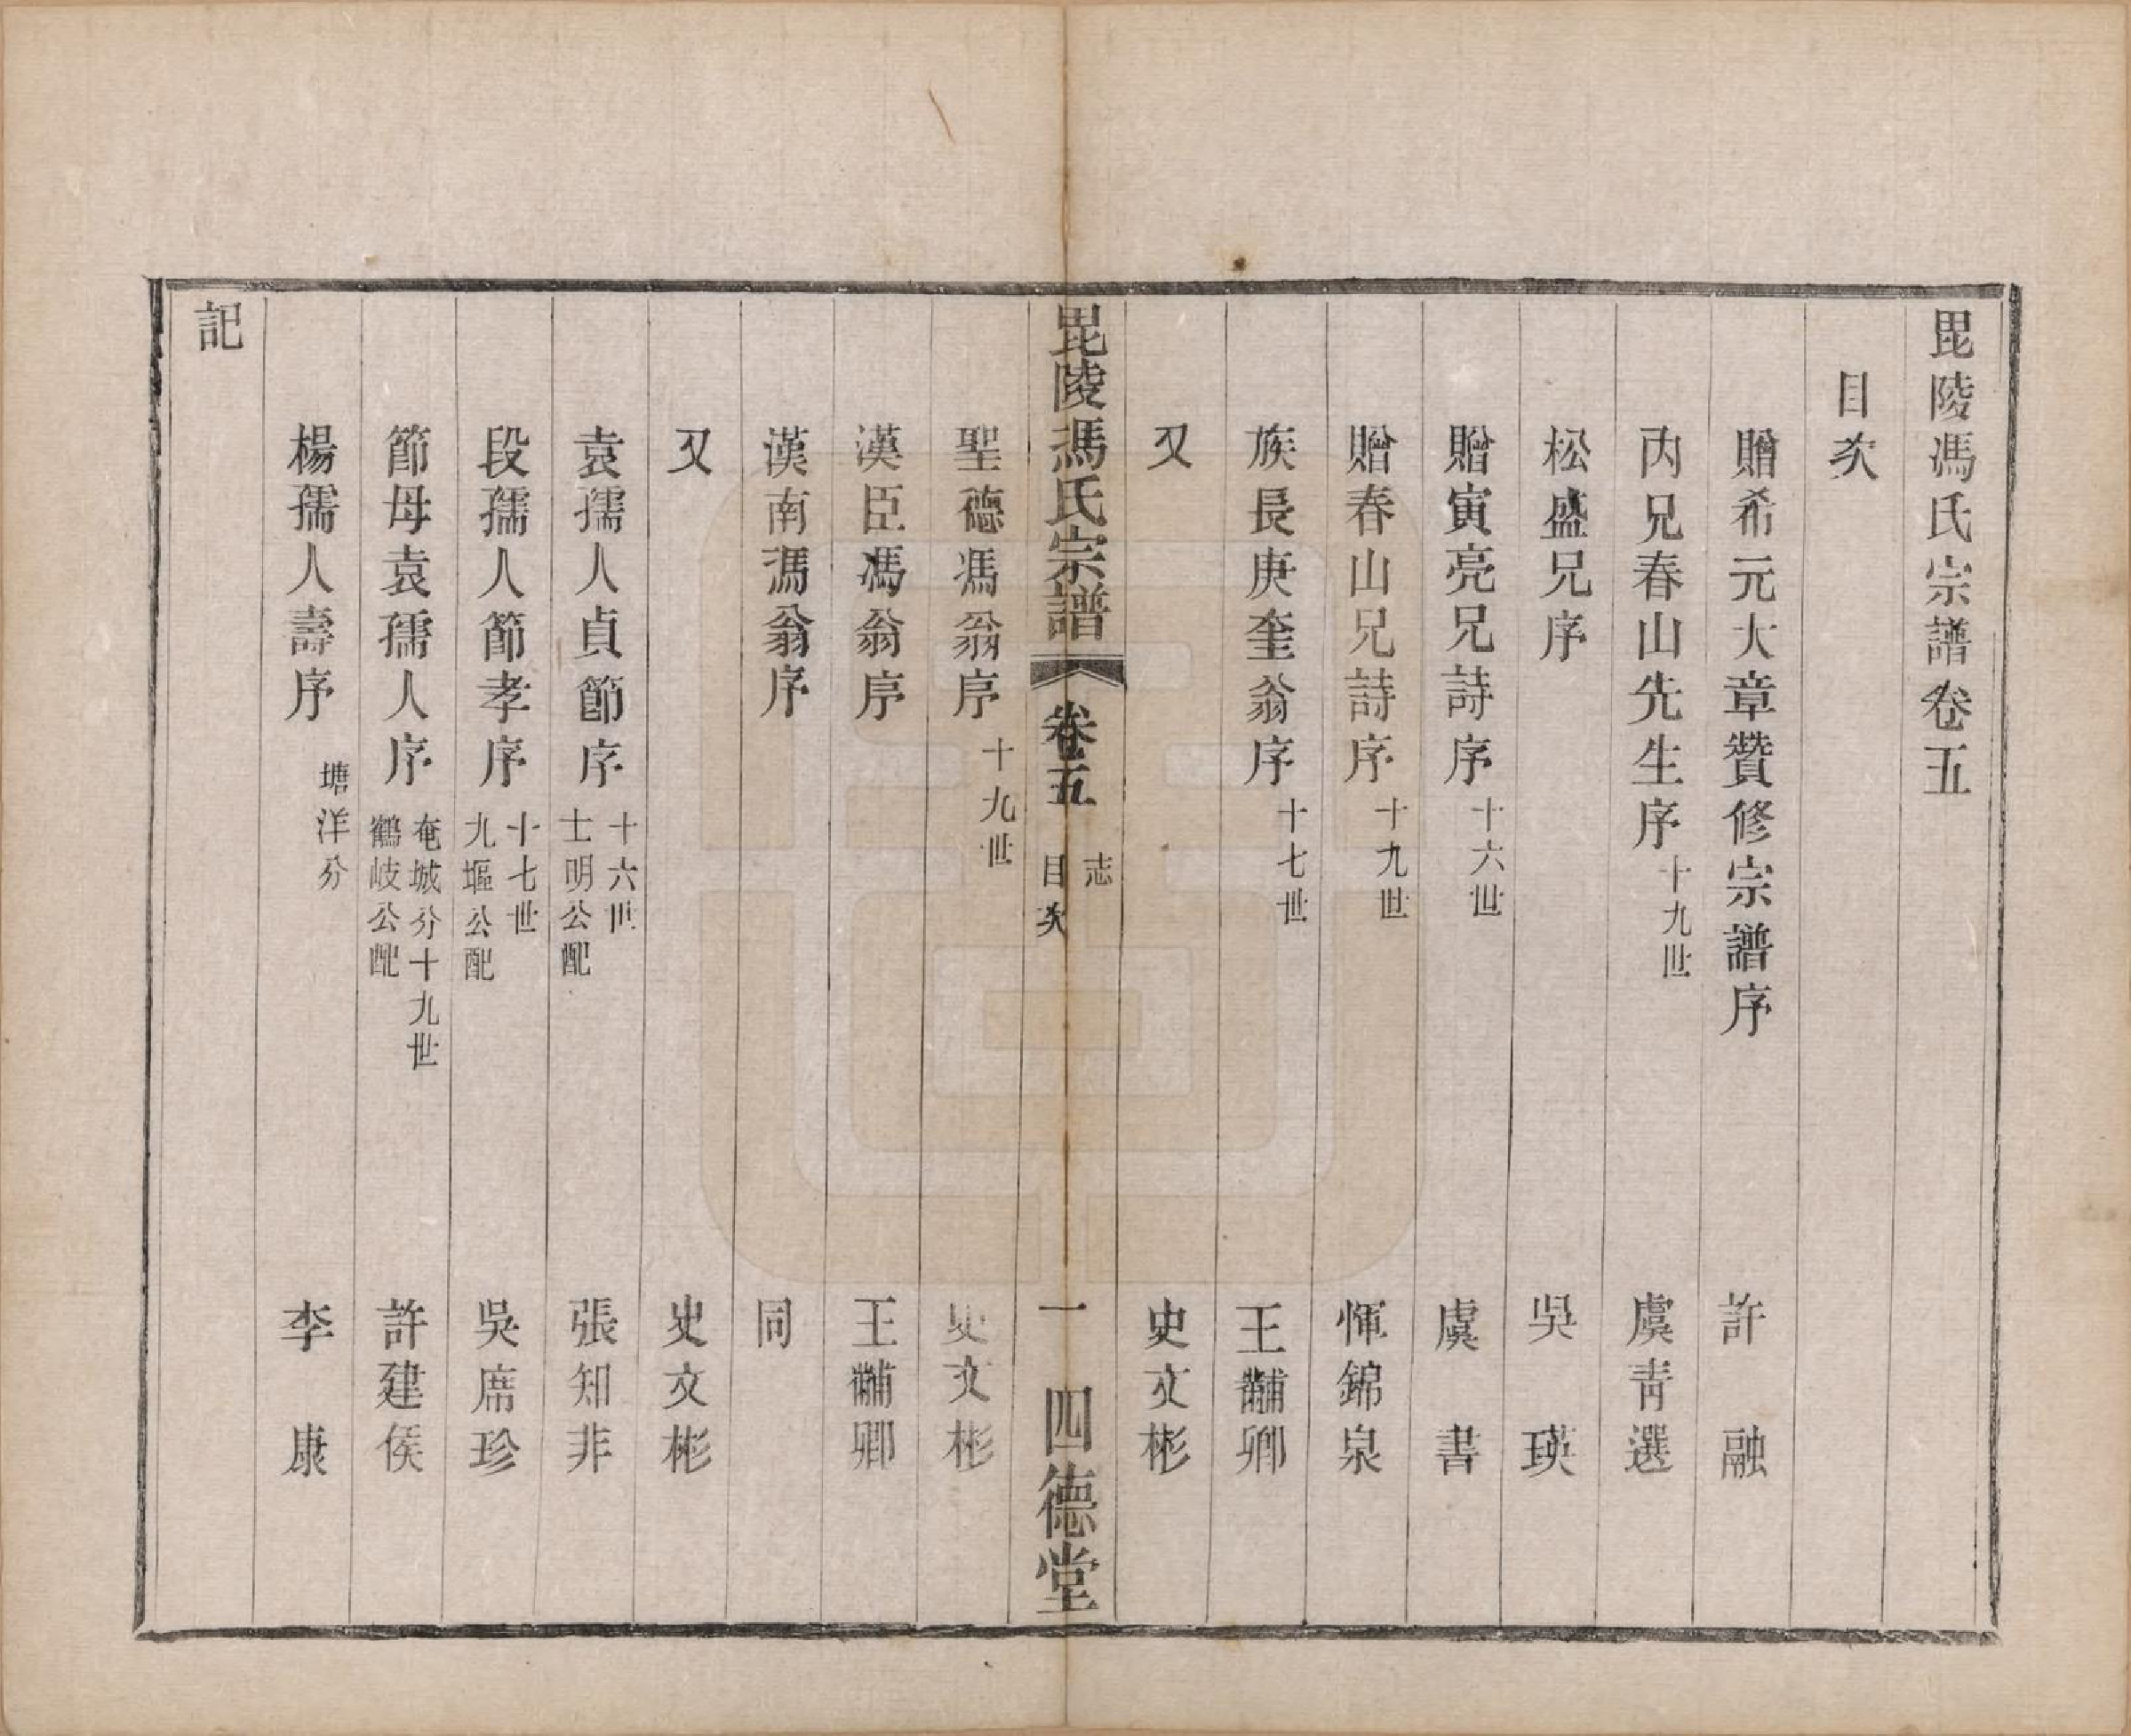 毘陵馮氏宗譜卷五
目次
贈希元大章贊修宗譜序 許融
丙兄春山先生序 十九世 虞青選
松盛兄序 吳瑛
贈寅亮兄詩序 十六世 虞書
贈春山兄詩序 十九世 惲錦泉
族長庚奎翁序 十七世 王黼卿
又 史文彬
毘陵馮氏宗譜 卷五 志 目次 一 四德堂
聖德馮翁序 十九世 史文彬
漢臣馮翁序 王黼卿
漢南馮翁序 同
又 史文彬
袁孺人貞節序 十六世 士明公配 張知非
段孺人節孝序 十七世 九堰公配 吳席珍
節母袁孺人序 奄城分十九世 鶴岐公配 許建侯
楊孺人壽序 塘洋分 李康
記